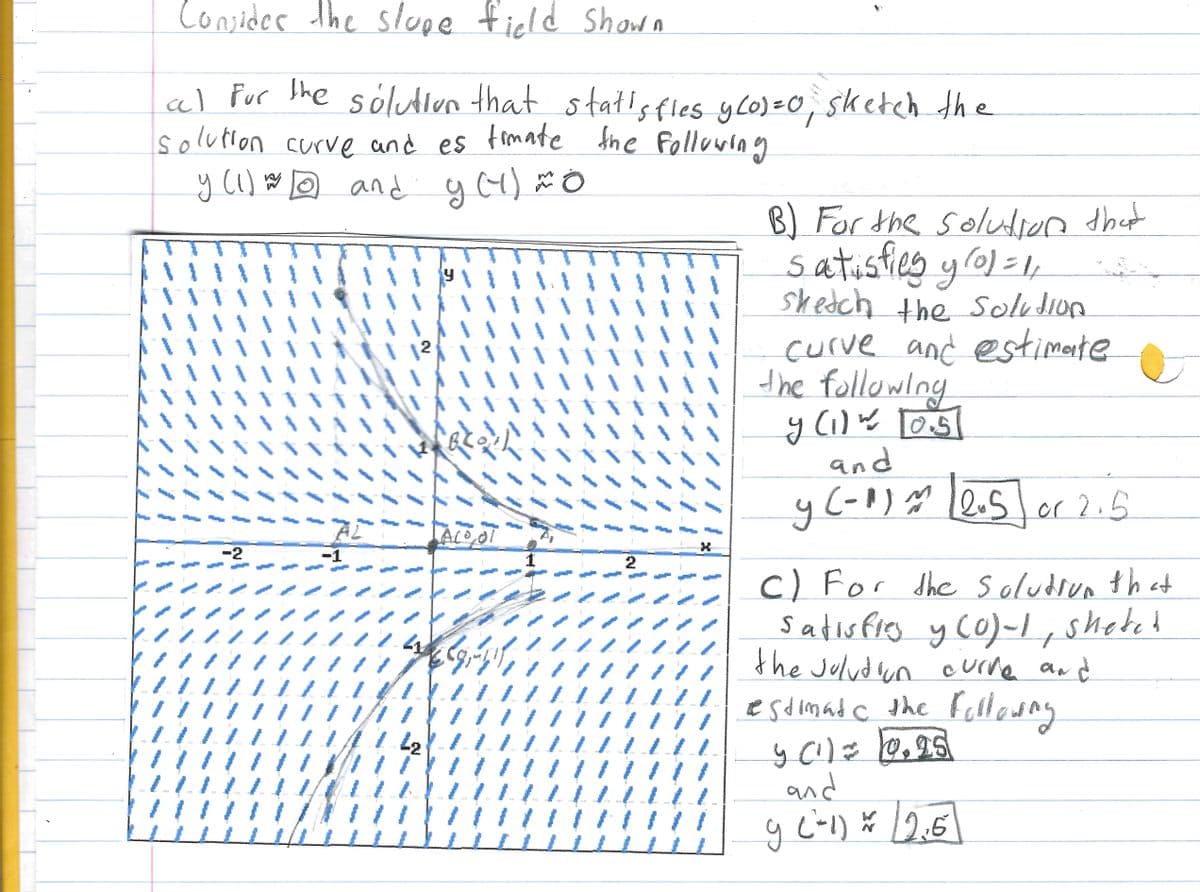 Consider the slope field shown
a) For the solution that statisfies y(0)=0, sketch the
solution curve and es timate the Following
y (1) ≈ 0 and y (-1) ≈ 0
B) For the solution that
satisfies y(0)=1,
sketch the solution
curve and estimate
the following
y (1) ≈ 0.5
and
y (-1) ≈ 2.5 or 2.5
C) For the solution that
satisfies y(0)-1, sketch
the solution curve and
estimate the following
y (1) ≈ 0.25
and
y (-1) ≈ 2.5
y
2
1 B(0,1)
A2 A(0,0) A1 x
-2 -1 1 2
-1 C(0,-1)
-2